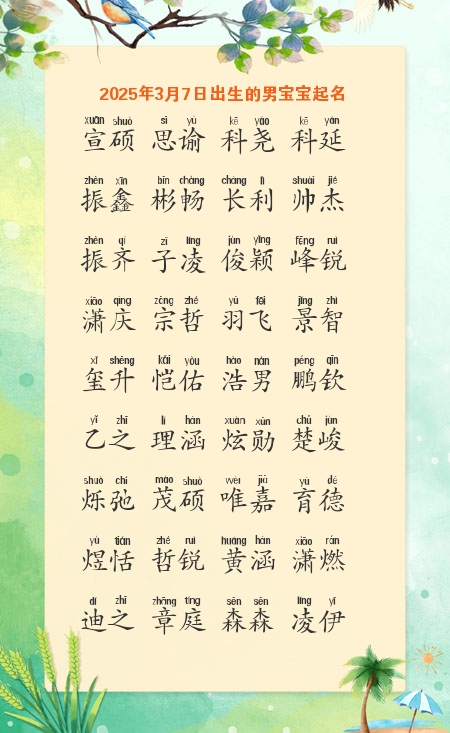 2025年3月7日出生的男宝宝起名
xuān shuò sī yù kē yáo kē yán
宣硕 思谕 科尧 科延
zhèn xīn bīn chàng cháng lì shuài jié
振鑫 彬畅 长利 帅杰
zhèn qí zǐ líng jùn yǐng fēng ruì
振齐 子凌 俊颖 峰锐
xiāo qìng zōng zhé yǔ fēi jǐng zhì
潇庆 宗哲 羽飞 景智
xǐ shēng kǎi yòu hào nán péng qīn
玺升 恺佑 浩男 鹏钦
yǐ zhī lǐ hán xuàn xūn chǔ jùn
乙之 理涵 炫勋 楚峻
shuò chí mào shuò wéi jiā yù dé
烁弛 茂硕 唯嘉 育德
yù tián zhé ruì huáng hán xiāo rán
煜恬 哲锐 黄涵 潇燃
dí zhī zhāng tíng sēn sēn líng yī
迪之 章庭 森森 凌伊